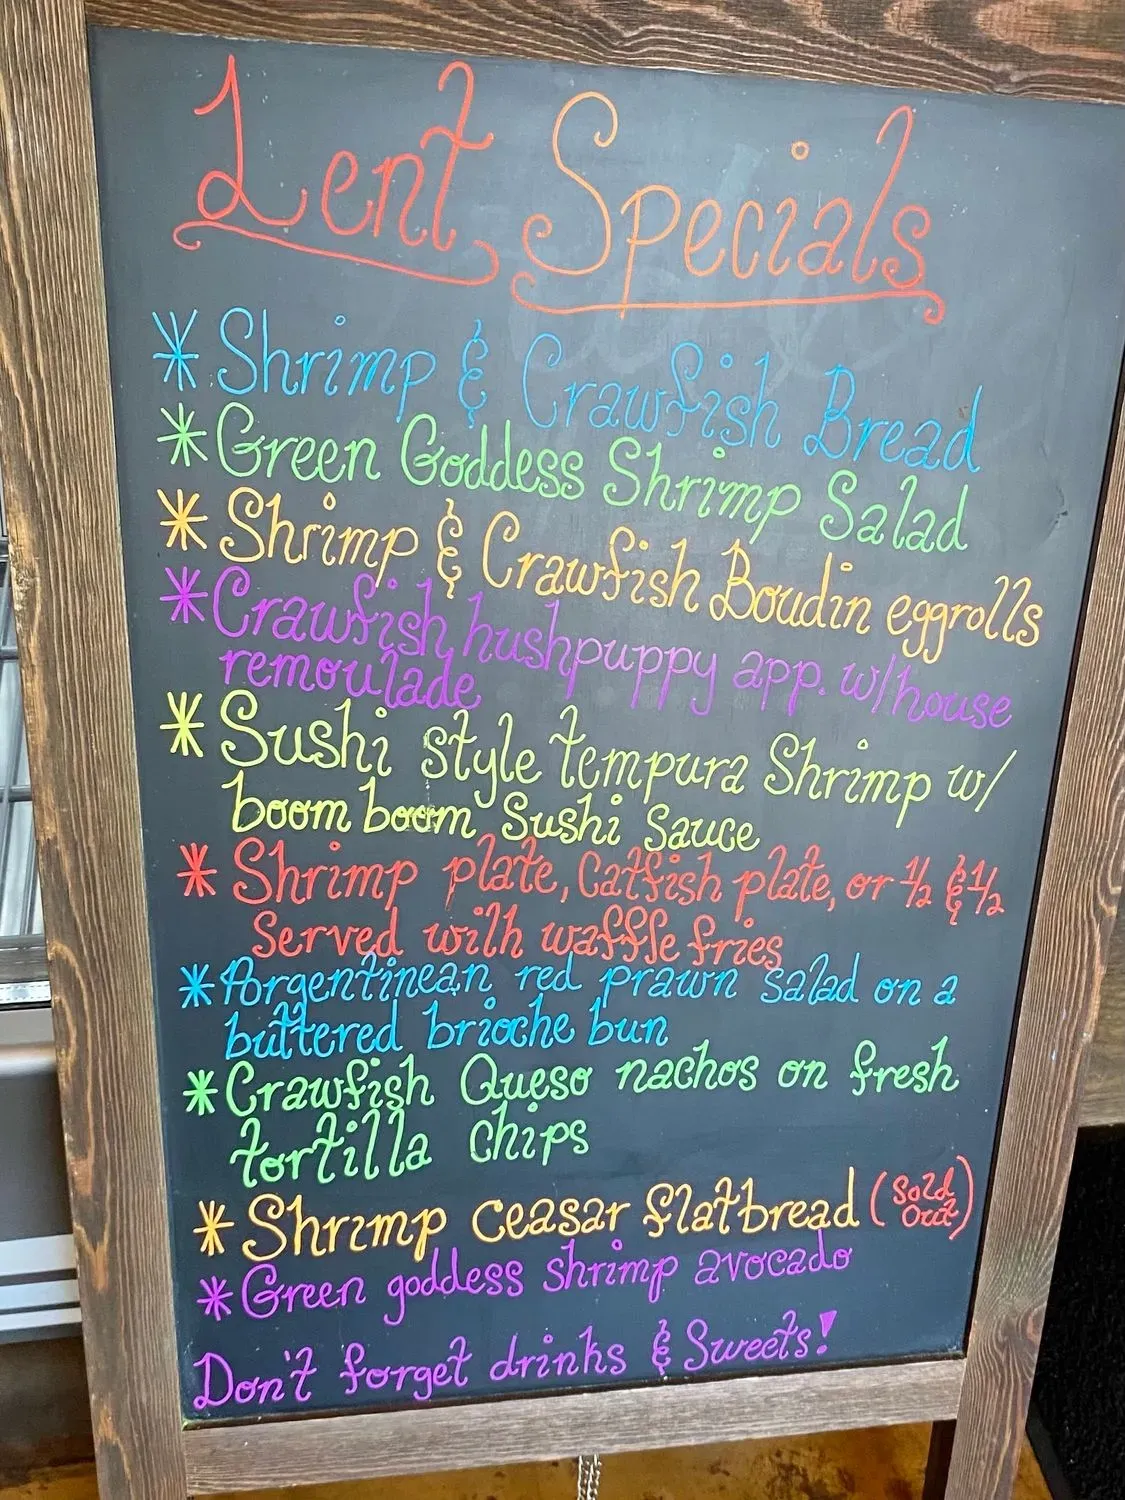 Lent Specials
* Shrimp & Crawfish Bread
* Green Goddess Shrimp Salad
* Shrimp & Crawfish Boudin eggrolls
* Crawfish hushpuppy app. w/house
remoulade
* Sushi style tempura Shrimp w/
boom boom Sushi Sauce
* Shrimp plate, Catfish plate, or 1/2 & 1/2
Served with waffle fries
* Argentinean red prawn salad on a
buttered brioche bun
* Crawfish Queso nachos on fresh
tortilla chips
* Shrimp ceasar flatbread (Sold
Out)
* Green goddess shrimp avocado
Don't forget drinks & Sweets!